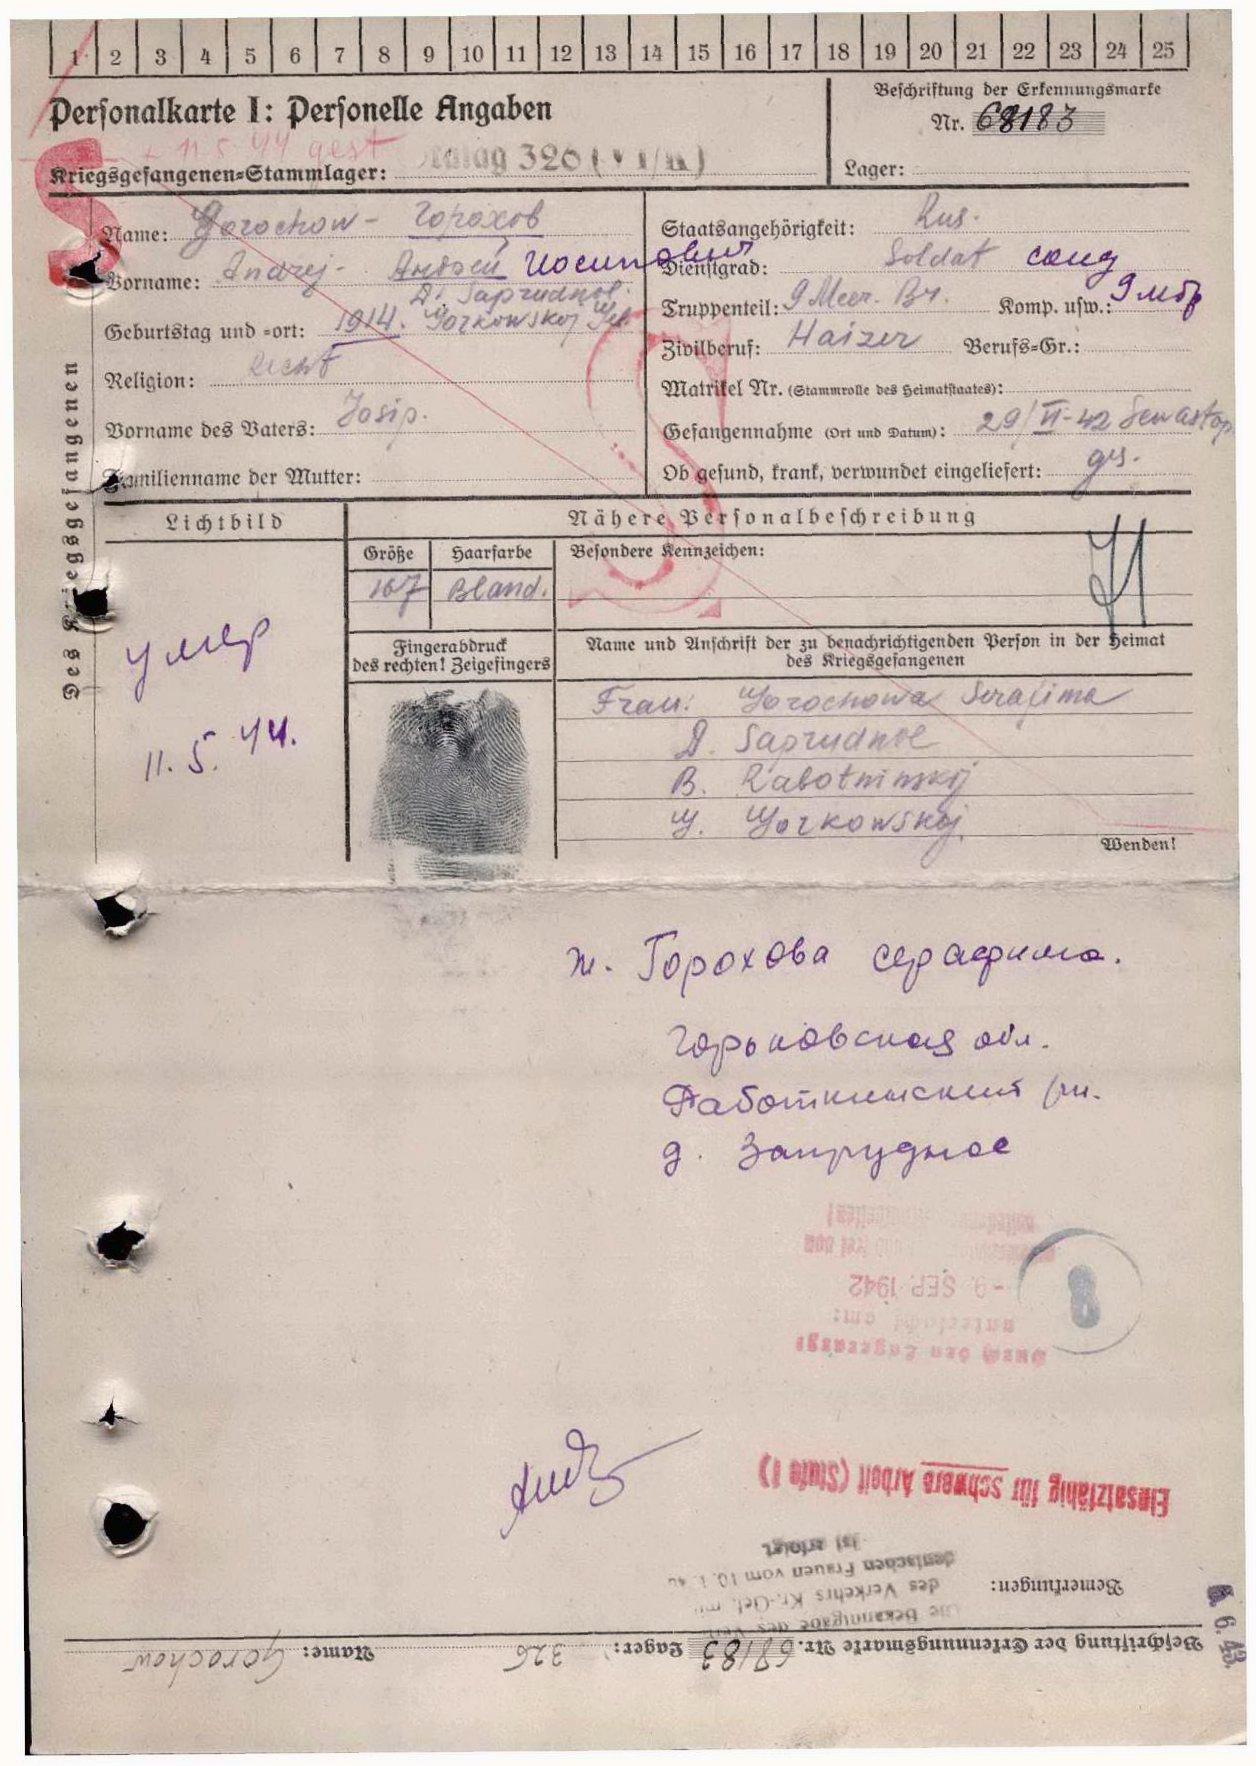 1 2 3 4 5 6 7 8 9 10 11 12 13 14 15 16 17 18 19 20 21 22 23 24 25
Personalkarte I: Personelle Angaben
Beschriftung der Erkennungsmarke
Nr. 68183
+ 11.5.44 gest
Kriegsgefangenen-Stammlager: Stalag 326 (VI/K)
Lager:
Des Kriegsgefangenen
Name: Gorochow - Горохов
Vorname: Andrej - Андрей Иосипович
D. Saprudnoe.
Geburtstag und -ort: 1914. Gorkowskoj
Religion:
Vorname des Vaters: Josip.
Familienname der Mutter:
Staatsangehörigkeit: Rus.
Dienstgrad: Soldat солд
Truppenteil: 9 Meer. Br. Komp. usw.: 9 мбр
Zivilberuf: Haizer Berufs-Gr.:
Matrikel Nr. (Stammrolle des Heimatstaates):
Gefangennahme (Ort und Datum): 29/VI-42 Sewastop
Ob gesund, krank, verwundet eingeliefert: ges.
Lichtbild
умер
11.5.44.
Nähere Personalbeschreibung
Größe Haarfarbe Besondere Kennzeichen:
167 Bland.
Fingerabdruck
des rechten! Zeigefingers
Name und Anschrift der zu benachrichtigenden Person in der Heimat
des Kriegsgefangenen
Frau: Gorochowa Serafima
D. Saprudnoe
R. Rabotninskij
G. Gorkowskoj
Wenden!
ж. Горохова серафима.
Горьковская обл.
Работкинский рн.
д. Запрудное
8
-9. SEP. 1942
Durch den Lagerarzt
Einsatzfähig für schwere Arbeit (Stufe I)
Bemerkungen:
Die Bekanntgabe des
des Verkehrs Kr.-Gef. mit
deutschen Frauen vom 10.1.40
ist erfolgt
6.43.
Beschriftung der Erkennungsmarke Nr. 68183 Lager: 326 Name: Gorochow